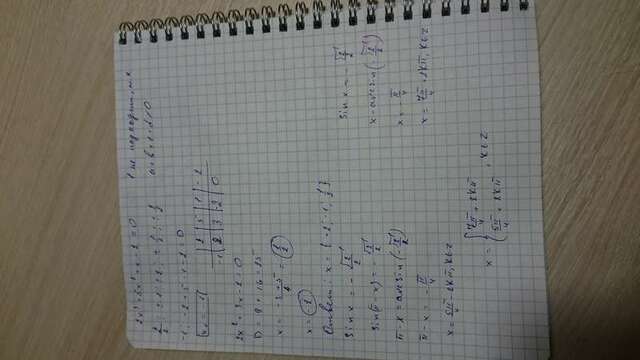 2x³ + 5x² + x - 2 = 0
1 не подходит, т.к
a+b+c+d≠0
-1: -2+5-1-2=0
x₁ = -1
2 | 5 | 1 | -2
-1 | 2 | 3 | -2 | 0
2x² + 3x - 2 = 0
D = 9 + 16 = 25
x = -2
Ответ: x = {-2; -1; 1/2}
sin x = - √2/2
sin(π-x) = - √2/2
π-x = arcsin(-√2/2)
π-x = -π/4
x = 5π/4 - 2Kπ, K∈Z
sin x = - √2/2
x = arcsin(-√2/2)
x = -π/4
x = 7π/4 + 2Kπ, K∈Z
x = { 7π/4 + 2Kπ
5π/4 + 2Kπ , K∈Z